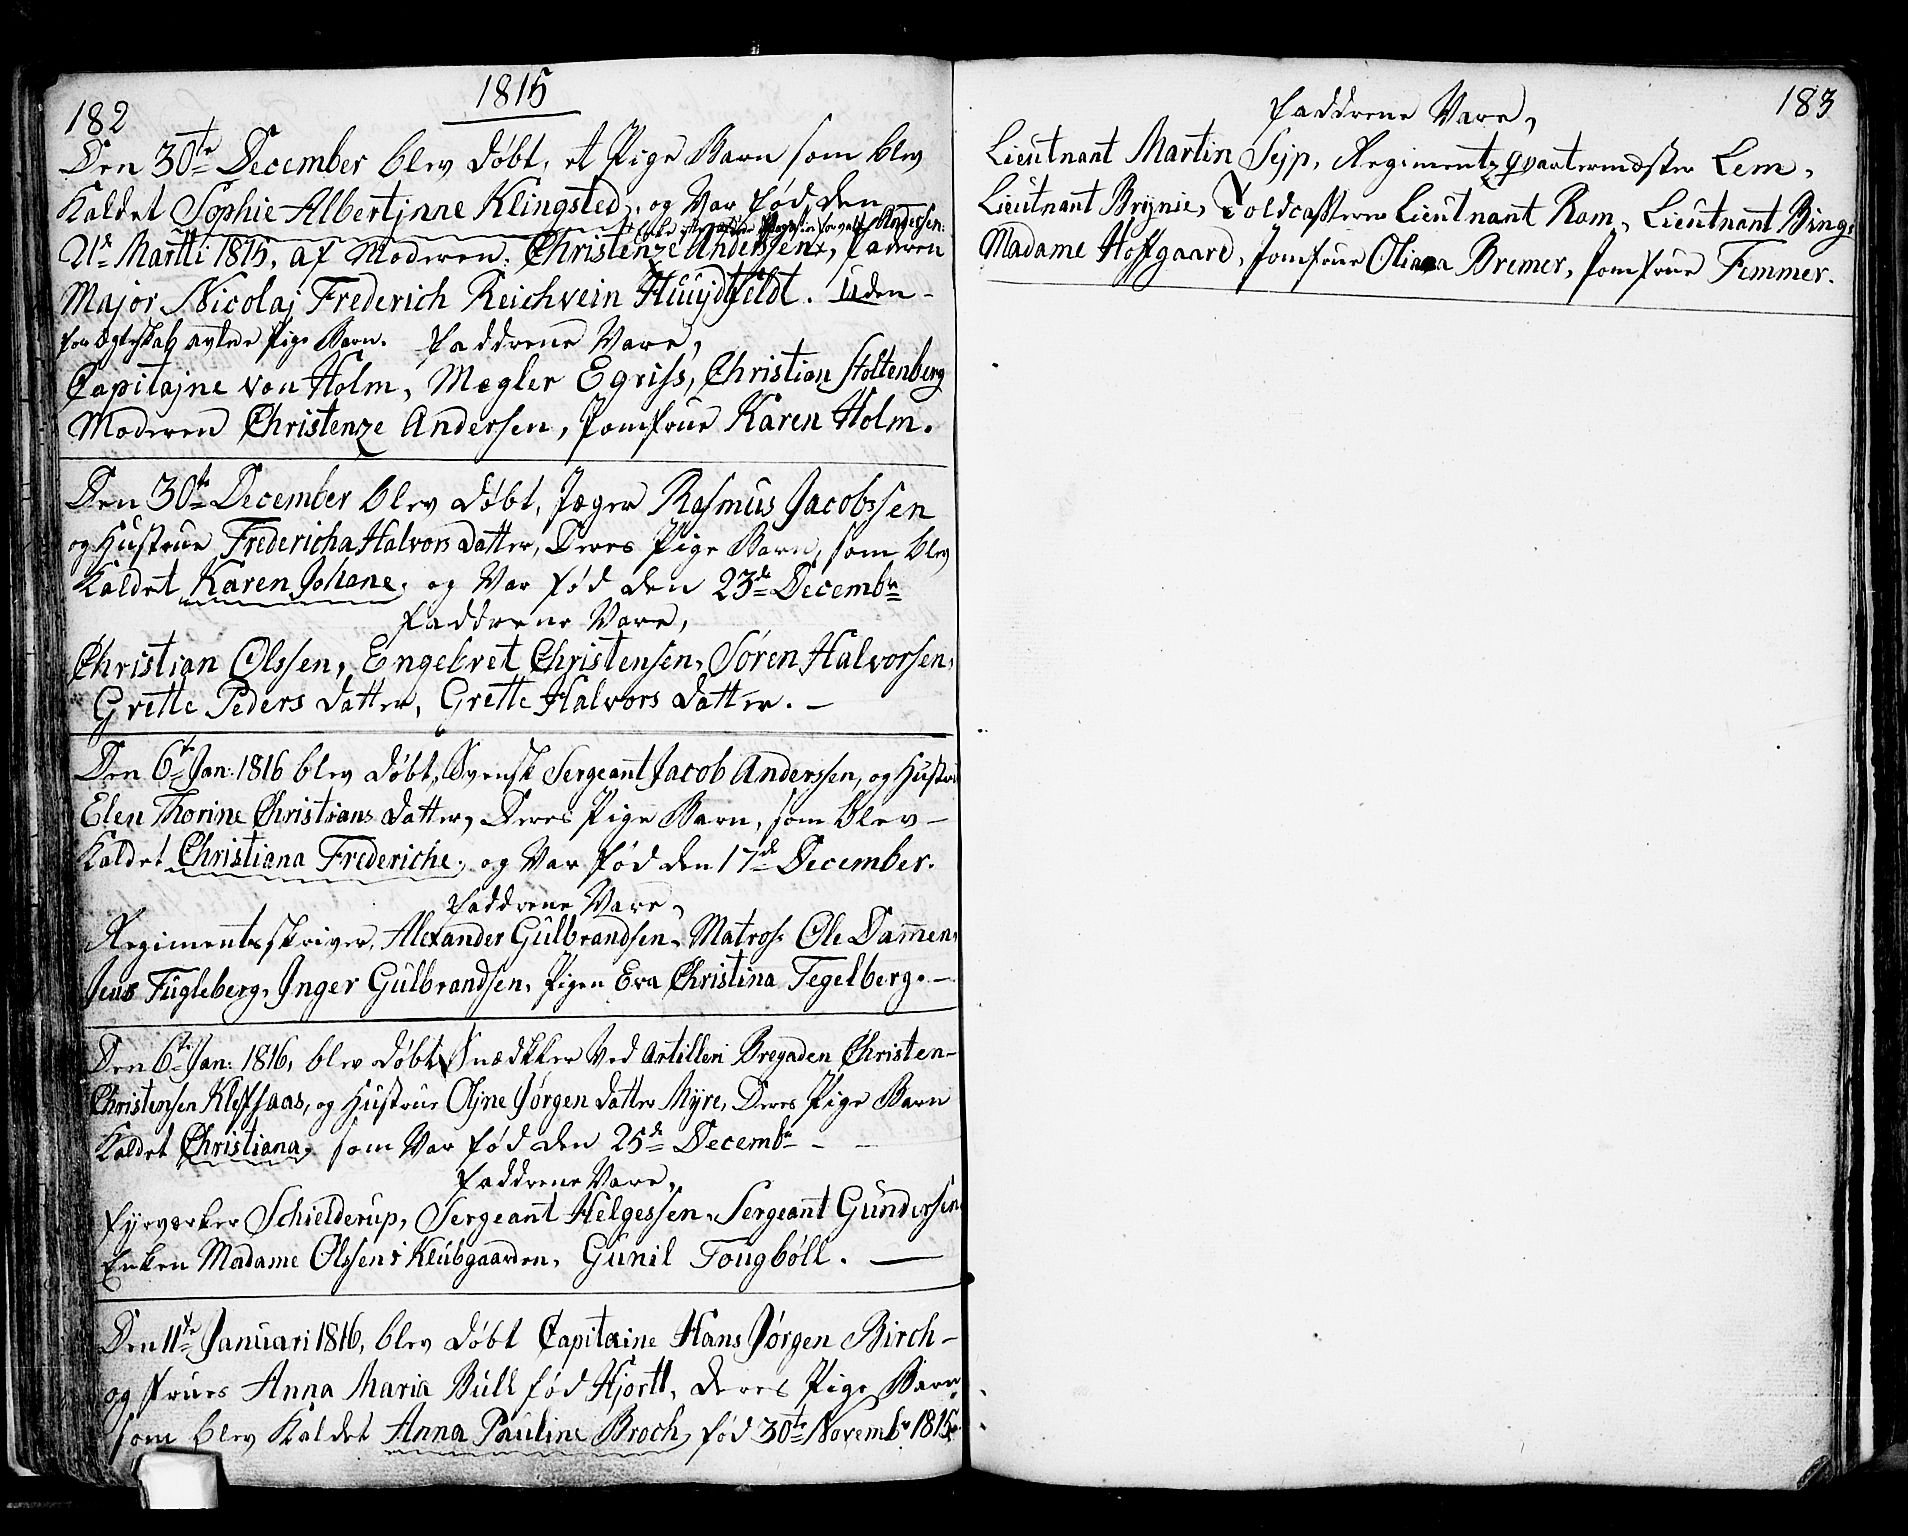 182
1815
Den 30te December blev døbt, et Pige Barn som blev
Kaldet Sophie Albertjnne Klingsted, og Var fød den
Andersen.
21de Martti 1815, af Moderen: Christenze Andersen, Fadren
Major Nicolaj Frederich Reichvein Huujdtfeldt. Uden-
for Egteskab avlede Pige Barn. Faddrene Vare,
Capitajne von Holm, Mægler Egriss, Christian Stoltenberg
Moderen Christenze Andersen, Jomfrue Karen Holm.
Den 30te December blev døbt, Jæger Rasmus Jacobssen
og Hustrue Fredericha Halvors datter, Deres Pige Barn, som blev
Kaldet Karen Johane, og Var fød den 23de Decembr
Faddrene Vare,
Christian Olssen, Engebret Christensen, Søren Halvorsen,
Grette Peders datter, Grette Halvors datter. -
Den 6te Jan: 1816 blev døbt, Svensk Sergeant Jacob Anderssen, og Hustru
Elen Thorine Christians datter, Deres Pige Barn, som blev-
Kaldet Christiana Frederiche, og Var fød den 17de December.
Faddrene Vare,
Regimentsskriver, Alexander Gulbrandsen, Matros: Ole Dammen,
Jens Fugleberg, Inger Gulbrandsen, Pigen Eva Christina Tegelberg. -
Den 6te Jan: 1816, blev døbt Snædkker Ved Artilleri Bregaden Christen-
Christensen Klefsaas, og Hustrue Oljne Jørgen datter Myre, Deres Pige Barn
Kaldet Christiana, som Var fød den 25de Decembr - -
Faddrene Vare,
Fyrværker Schielderup, Sergeant Helgessen, Sergeant Gundersen,
Enken Madame Olssen i Klubgaarden, Gunil Tougbøll. -
Den 11te Januari 1816, blev døbt Capitaine Hans Jørgen Birch-
og Frues Anna Maria Bull fød Hjortt, deres Pige Barn
som blev Kaldet Anna Pauline Broch, fød 30te Novembr 1815.
183
Faddrene Vare,
Lieutnant Martin Sejp, Regimentzqvartermæster Lem,
Lieutnant Brijnie, Toldcasserer Lieutnant Ram, Lieutnant Bing,
Madame Hoffgaard, Jomfrue Oliana Bremer, Jomfrue Femmer.